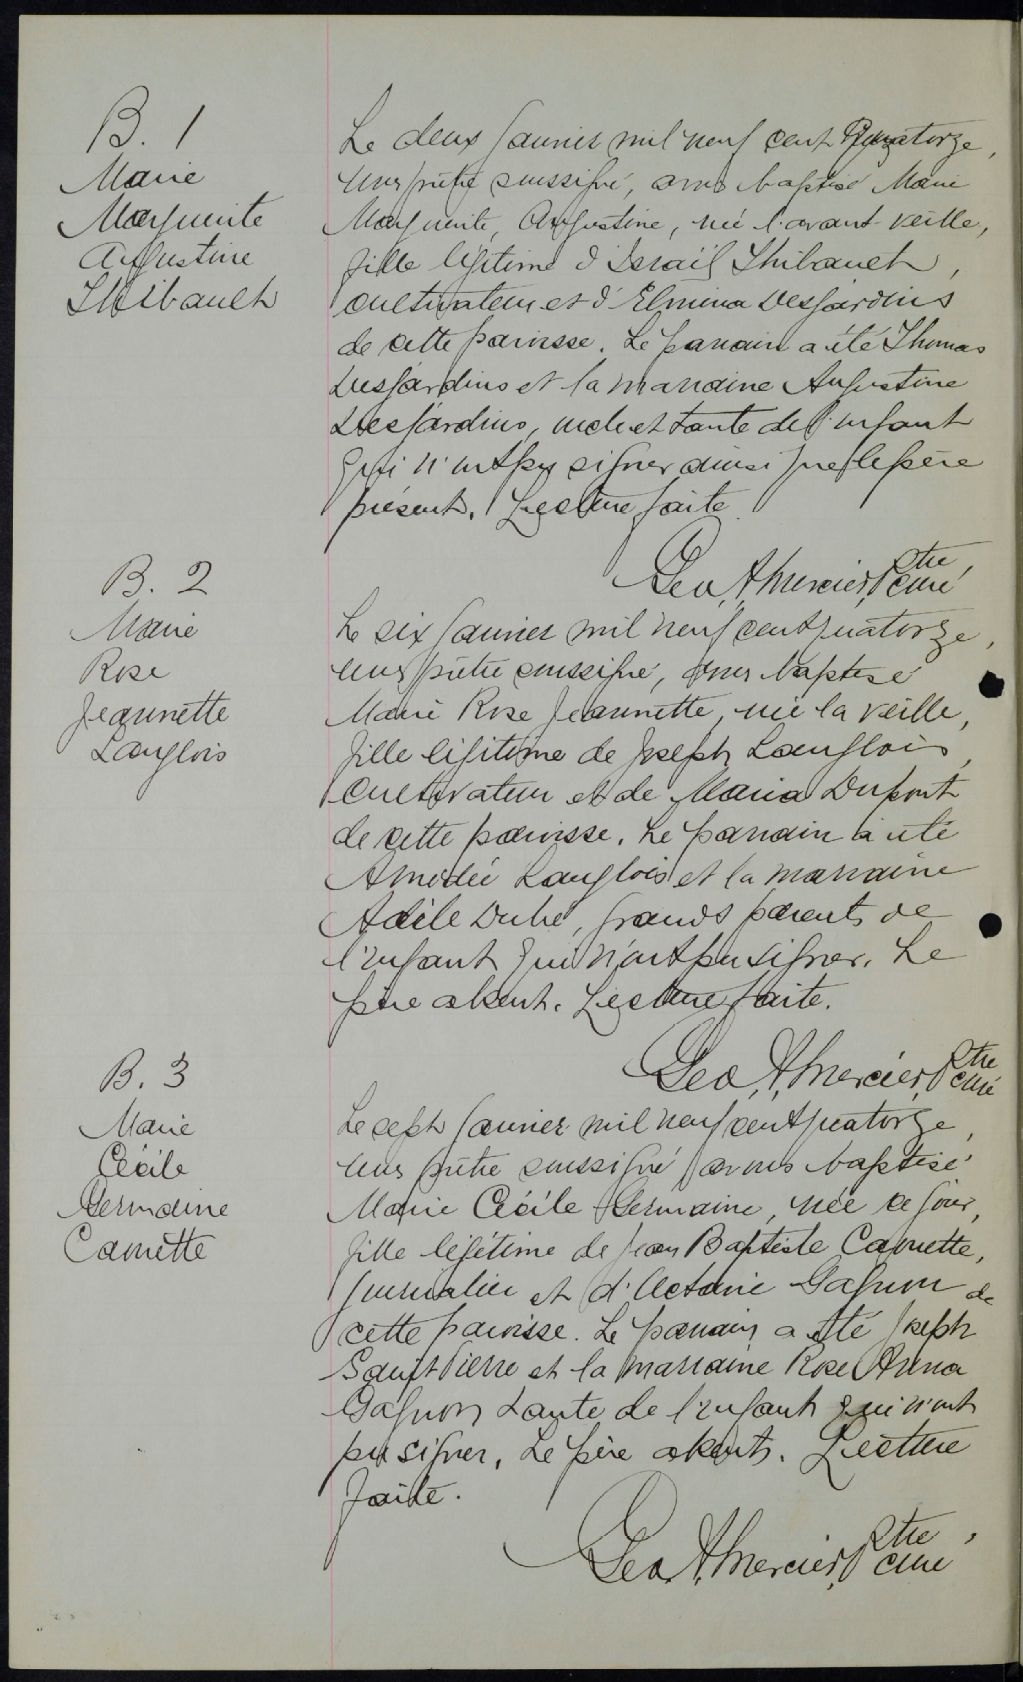 B. 1
Marie
Marguerite
Augustine
Thibault
Le deux Janvier mil neuf cent Quatorze,
nous prêtre soussigné, avons baptisé Marie
Marguerite, Augustine, née l'avant veille,
fille légitime d'Israël Thibault,
cultivateur et d'Elmina Desjardins
de cette paroisse. Le parrain a été Thomas
Desjardins et la marraine Augustine
Desjardins, oncle et tante de l'enfant
qui n'ont pu signer ainsi que le père
présent. Lecture faite.
Geo. A. Mercier, Ptre, curé
B. 2
Marie
Rose
Jeannette
Langlois
Le six Janvier mil neuf cent quatorze,
nous prêtre soussigné, avons baptisé
Marie Rose Jeannette, née la veille,
fille légitime de Joseph Langlois,
cultivateur et de Maria Dupont
de cette paroisse. Le parrain a été
Amédée Langlois et la marraine
Adèle Dubé, grands parents de
l'enfant qui n'ont pu signer. Le
père absent. Lecture faite.
Geo. A. Mercier, Ptre curé
B. 3
Marie
Cécile
Germaine
Caouette
Le sept Janvier mil neuf cent quatorze,
nous prêtre soussigné avons baptisé
Marie Cécile Germaine, née ce jour,
fille légitime de Jean Baptiste Caouette,
journalier et d'Octavie Gagnon de
cette paroisse. Le parrain a été Joseph
Saint Pierre et la marraine Rose Anna
Gagnon tante de l'enfant qui n'ont
pu signer. Le père absent. Lecture
faite.
Geo. A. Mercier, Ptre, curé